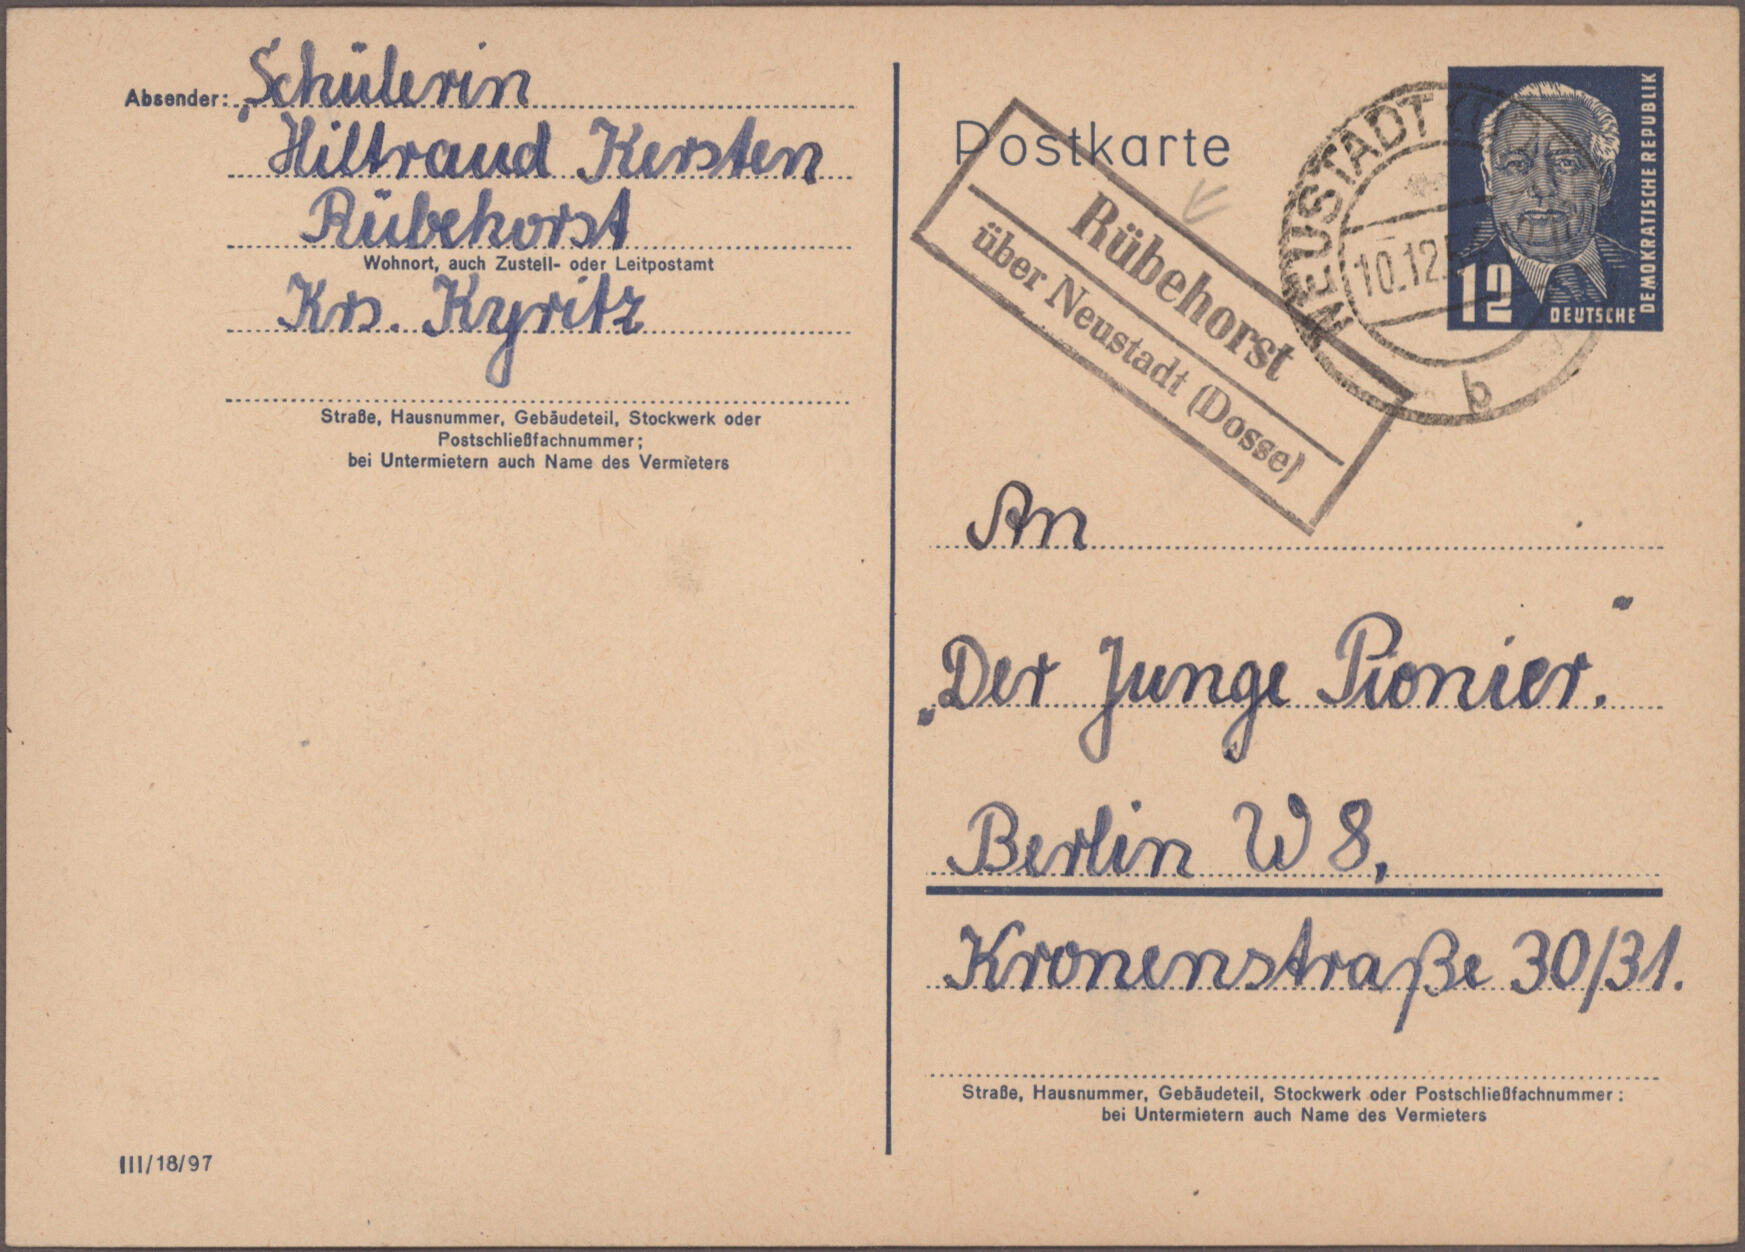 Absender: Schülerin
Hiltraud Kersten
Rübehorst
Wohnort, auch Zustell- oder Leitpostamt
Krs. Kyritz
Straße, Hausnummer, Gebäudeteil, Stockwerk oder
Postschließfachnummer;
bei Untermietern auch Name des Vermieters
III/18/97
Postkarte
Rübehorst
über Neustadt (Dosse)
NEUSTADT
10.12.
b
12
DEUTSCHE
DEMOKRATISCHE REPUBLIK
An
„Der Junge Pionier.“
Berlin W 8,
Kronenstraße 30/31.
Straße, Hausnummer, Gebäudeteil, Stockwerk oder Postschließfachnummer:
bei Untermietern auch Name des Vermieters